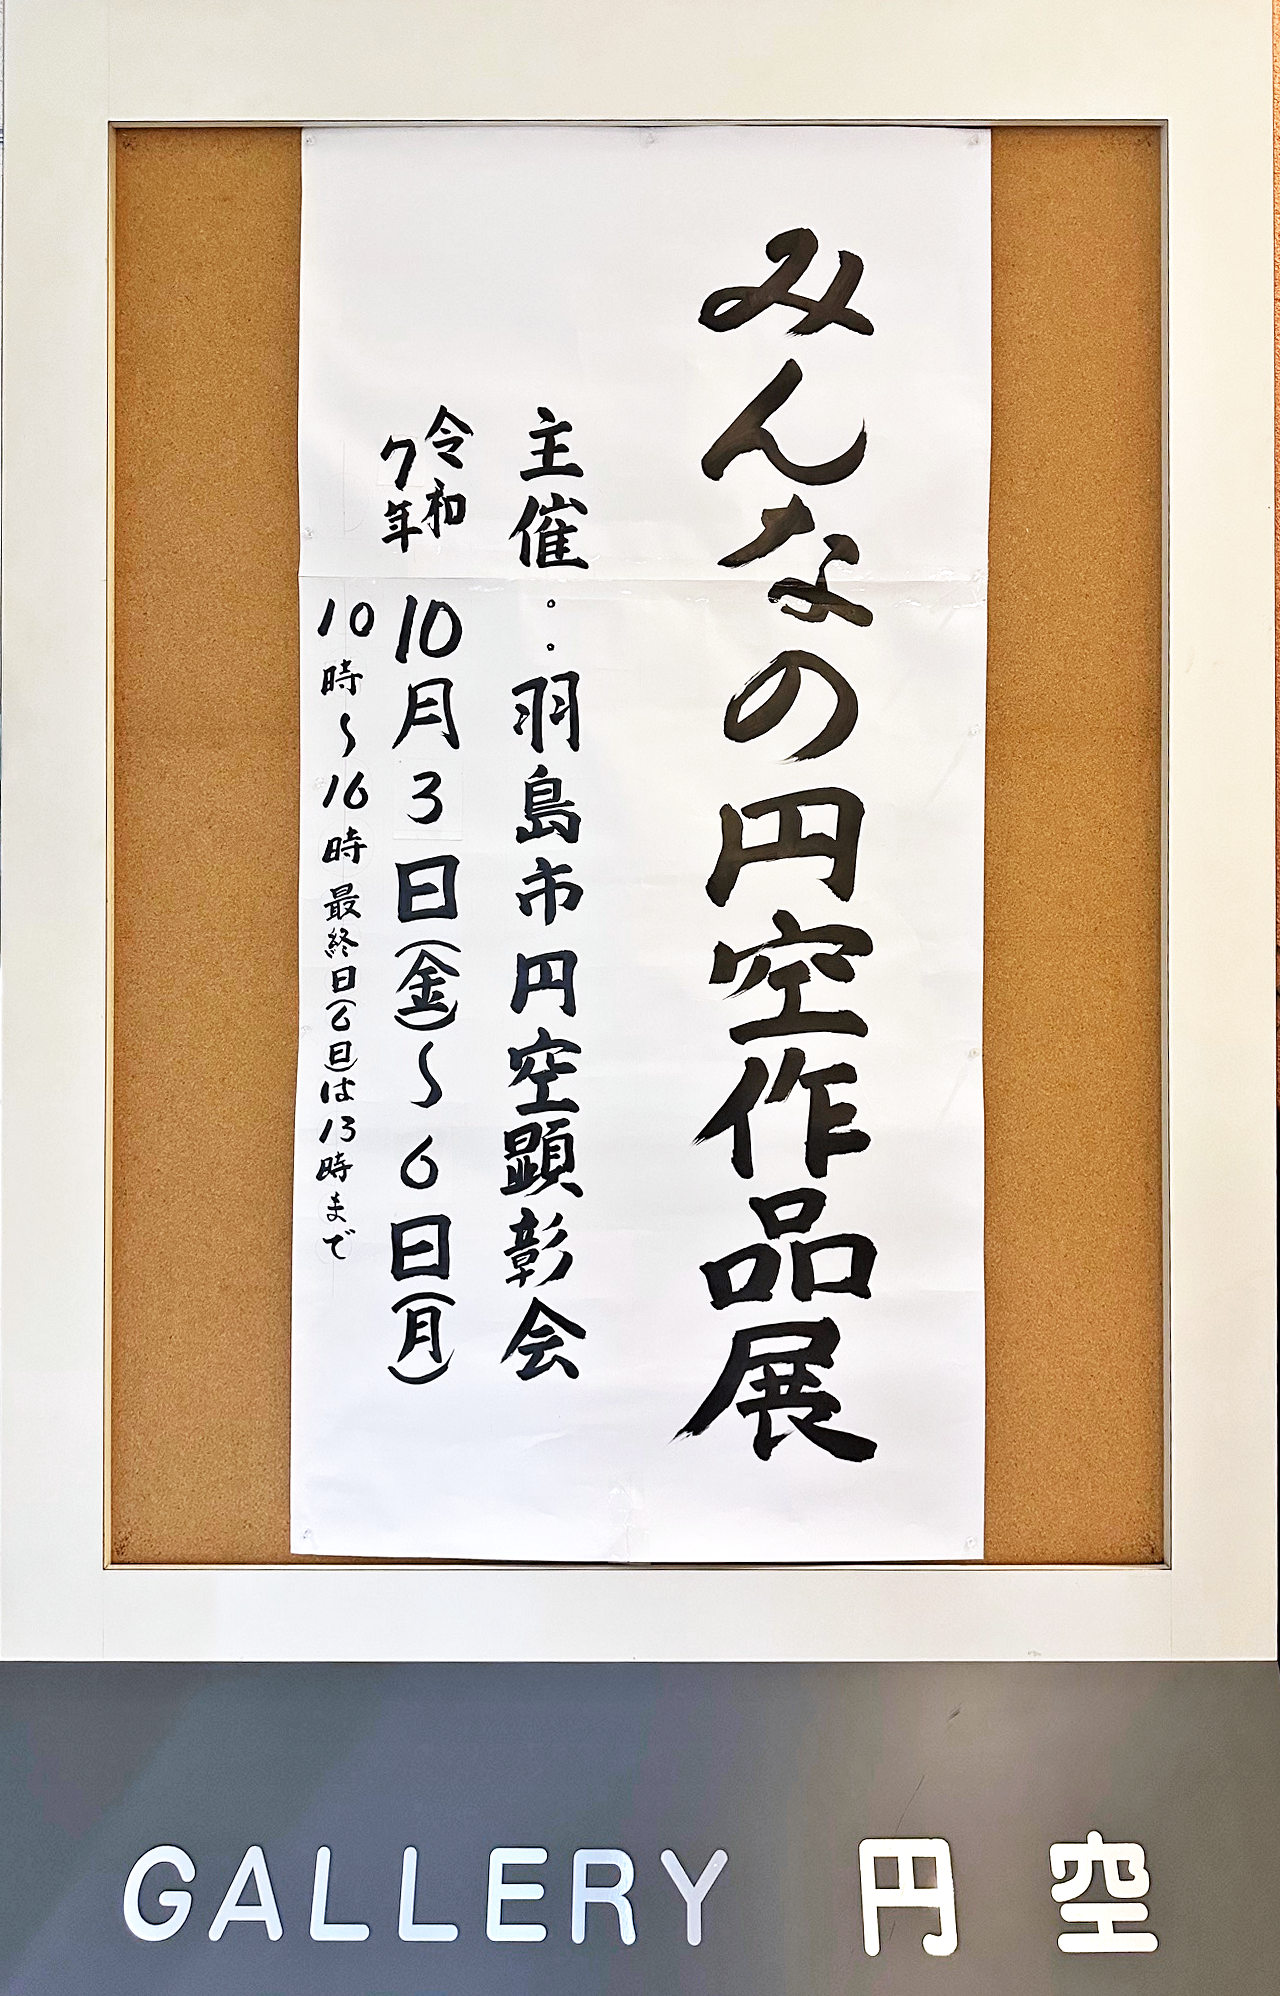 みんなの円空作品展
主催：羽島市円空顕彰会
令和7年 10月3日(金)～6日(月)
10時～16時 最終日(6日)は13時まで
GALLERY 円空